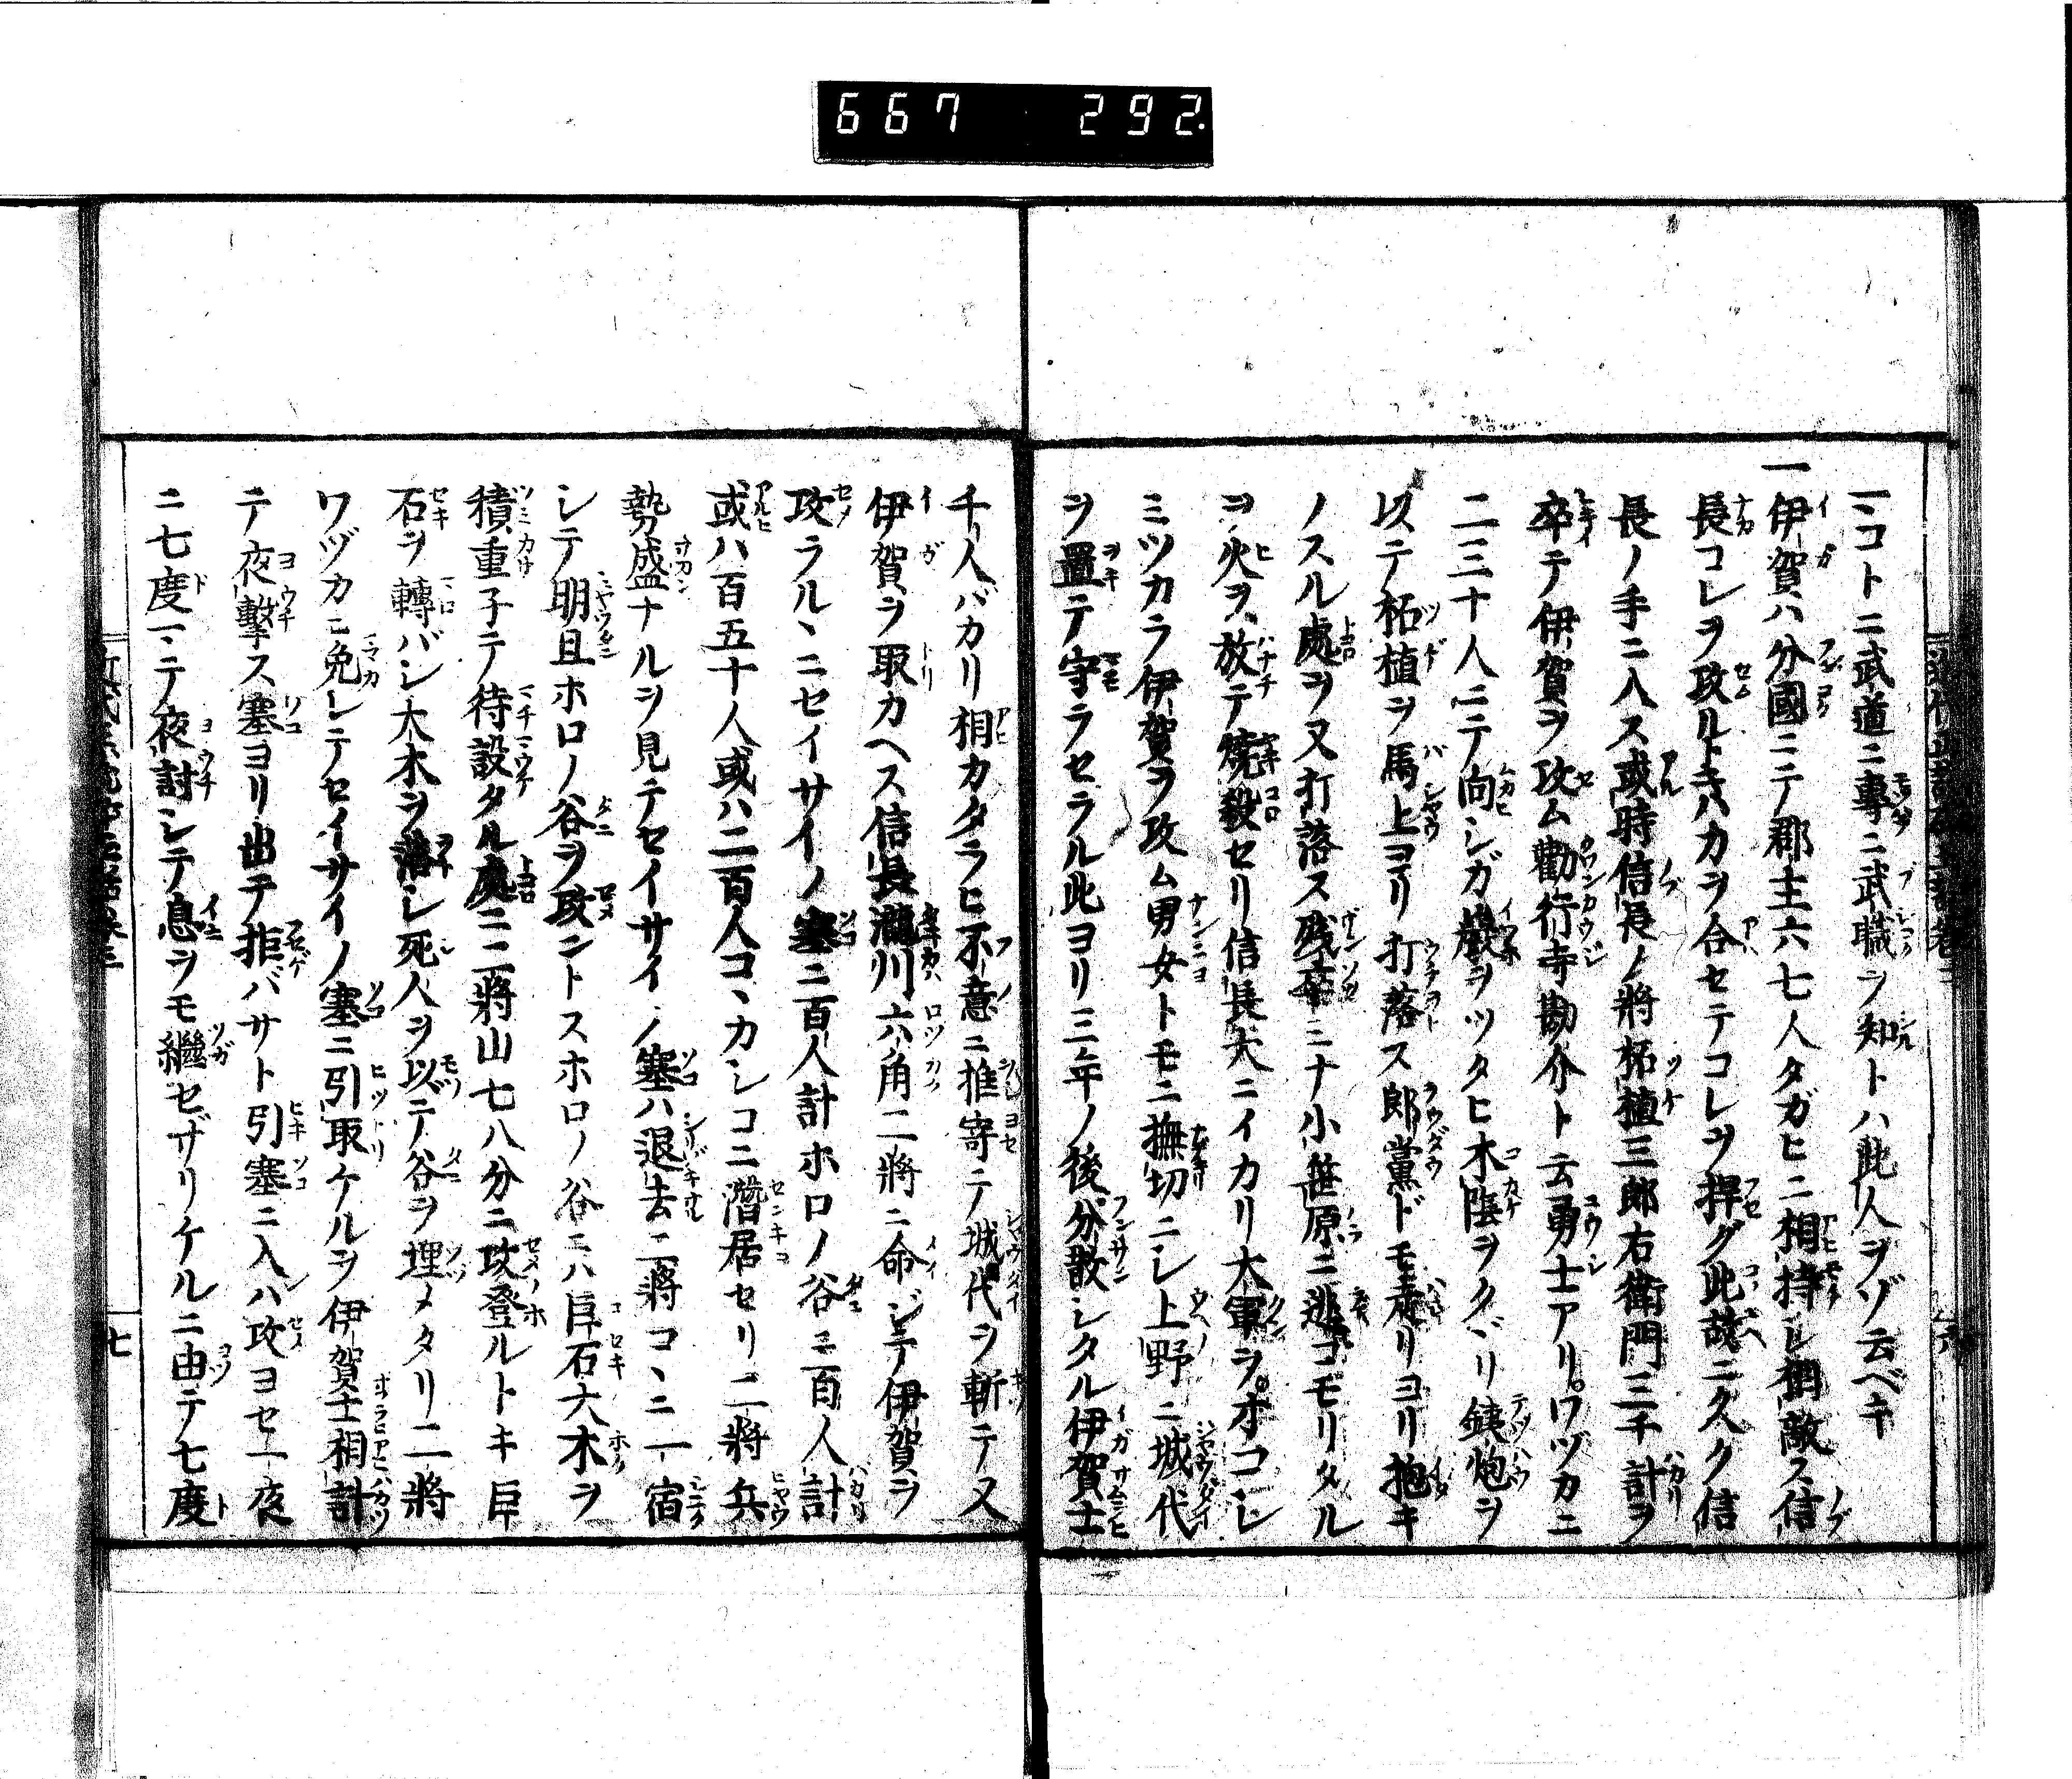 667 292
一コトニ武道ニ專ニ武職ヲ知トハ此人ヲゾ云ベキ
一伊賀ハ分國ニテ郡主六七人タガヒニ相持シ相敵ス信
長コレヲ攻ルトキハカヲ合セテコレヲ捍グ此故ニ久ク信
長ノ手ニ入ス或時信長ノ將柘植三郎右衛門三千計ヲ
卒テ伊賀ヲ攻ム勸行寺勘介ト云勇士アリ。ワヅカニ
二三十人ニテ向シガ巖ヲツタヒ木陰ヲクヾリ鉄炮ヲ
以テ柘植ヲ馬上ヨリ打落ス郎黨ドモ走リヨリ抱キ
ノスル處ヲ又打落ス殘卒ミナ小笹原ニ逃コモリタル
ヲ火ヲ放テ燒殺セリ信長大ニイカリ大軍ヲ。オコシ
ミツカラ伊賀ヲ攻ム男女トモニ撫切ニシ上野ニ城代
ヲ置テ守ラセラル此ヨリ三年ノ後分散シタル伊賀士
千人バカリ相カタラヒ不意ニ推寄テ城代ヲ斬テ又
伊賀ヲ取カヘス信長瀧川六角二將ニ命ジテ伊賀ヲ
攻ラルヽニセイサイノ塞ニ百人計ホロノ谷ニ百人計
或ハ百五十人或ハ二百人コヽカシコニ潛居セリ二將兵
勢盛ナルヲ見テセイサイノ塞ハ退去二將コヽニ一宿
シテ明旦ホロノ谷ヲ攻ントスホロノ谷ニハ巨石大木ヲ
積重子テ待設タル處ニ二將山七八分ニ攻登ルトキ巨
石ヲ轉バシ大木ヲ落シ死人ヲ以テ谷ヲ埋メタリ二將
ワヅカニ免レテセイサイノ塞ニ引取ケルヲ伊賀士相計
テ夜擊ス塞ヨリ出テ拒バサト引塞ニ入ハ攻ヨセ一夜
ニ七度マテ夜討シテ息ヲモ繼セザリケルニ由テ七度
七